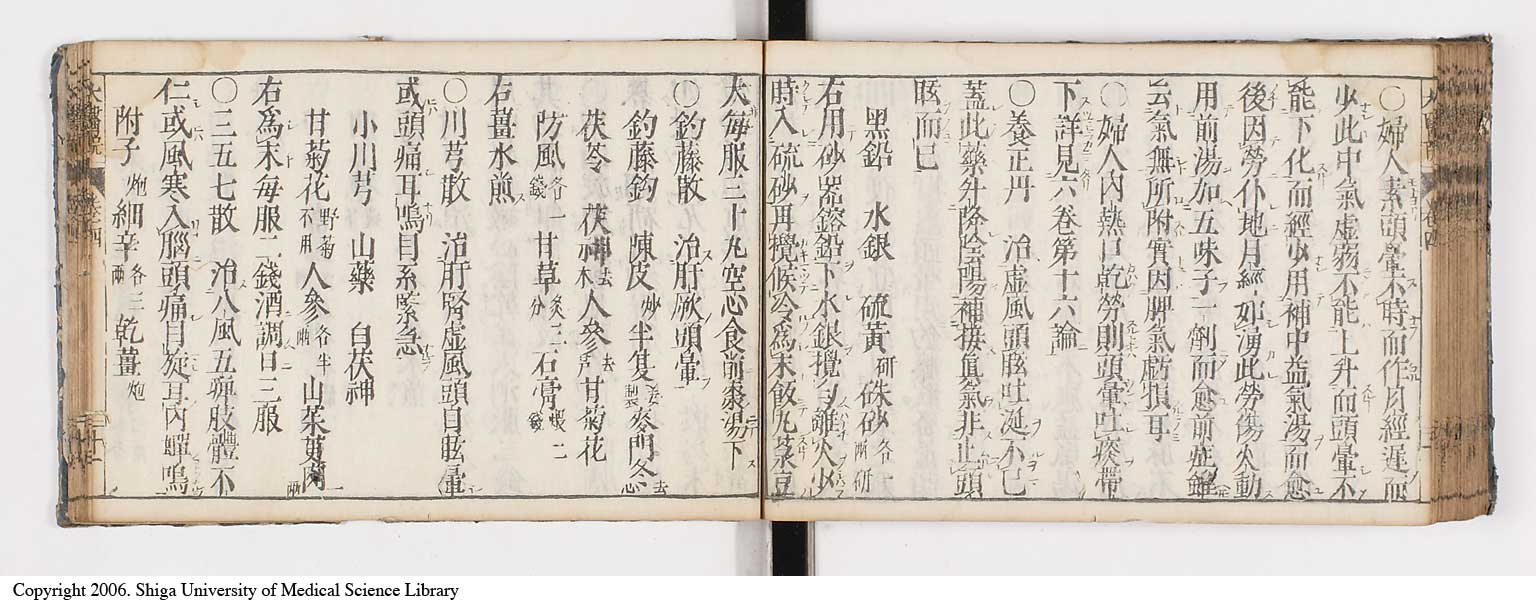 ○婦人素頭暈不時而作月經遲而
少此中氣虛弱不能上升而頭暈不
能下化而經少用補中益氣湯而愈
後因勞仆地月經如湧此勞傷火動
用前湯加五味子一劑而愈前症雖
云氣無所附實因脾氣虧損耳
○婦人內熱口乾勞則頭暈吐痰帶
下詳見六卷第十六論
○養正丹 治虛風頭眩吐涎不已
蓋此藥升降陰陽補接真氣非止頭
眩而已
黑鉛 水銀 硫黃研 硃砂各一兩研
右用砂器鎔鉛下水銀攪勻離火少
時入硫砂再攪候冷為末飯丸菉豆
大每服三十丸空心食前棗湯下
○釣藤散 治肝厥頭暈
釣藤鈎 陳皮炒 半夏姜製 麥門冬去心
茯苓 茯神去木 人參去芦 甘菊花
防風各一錢 甘草炙三分 石膏煆二錢
右薑水煎
○川芎散 治肝腎虛風頭目眩暈
或頭痛耳鳴目系緊急
小川芎 山藥 白茯神
甘菊花野菊不用 人參各半兩 山茱萸肉一兩
右為末每服二錢酒調日三服
○三五七散 治八風五痺肢體不
仁或風寒入腦頭痛目旋耳內蟬鳴
附子炮 細辛各三兩 乾薑炮
Copyright 2006. Shiga University of Medical Science Library